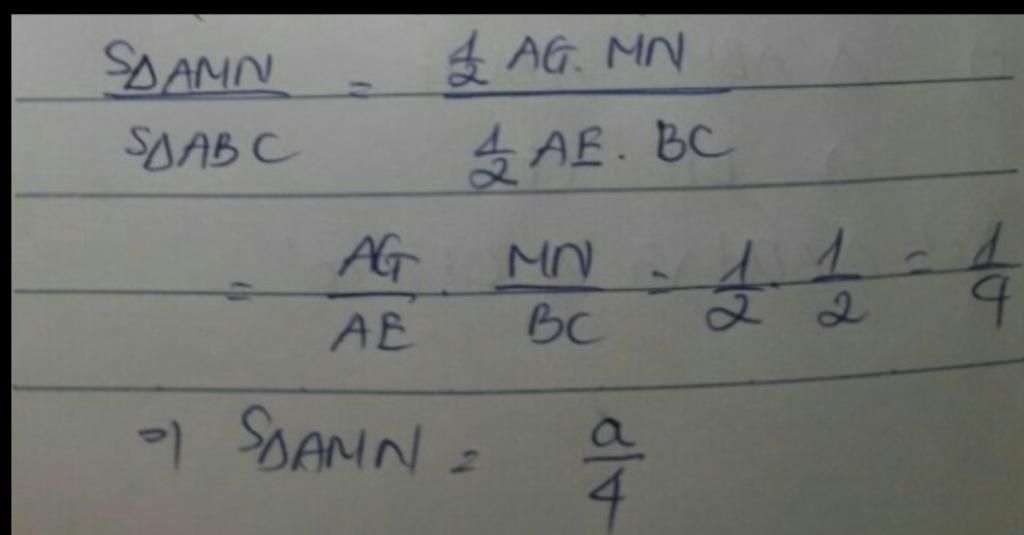 SΔAMN / SΔABC = 1/2 AG. MN / 1/2 AE. BC
= AG/AE . MN/BC = 1/2 . 1/2 = 1/4
=> SΔAMN = a/4